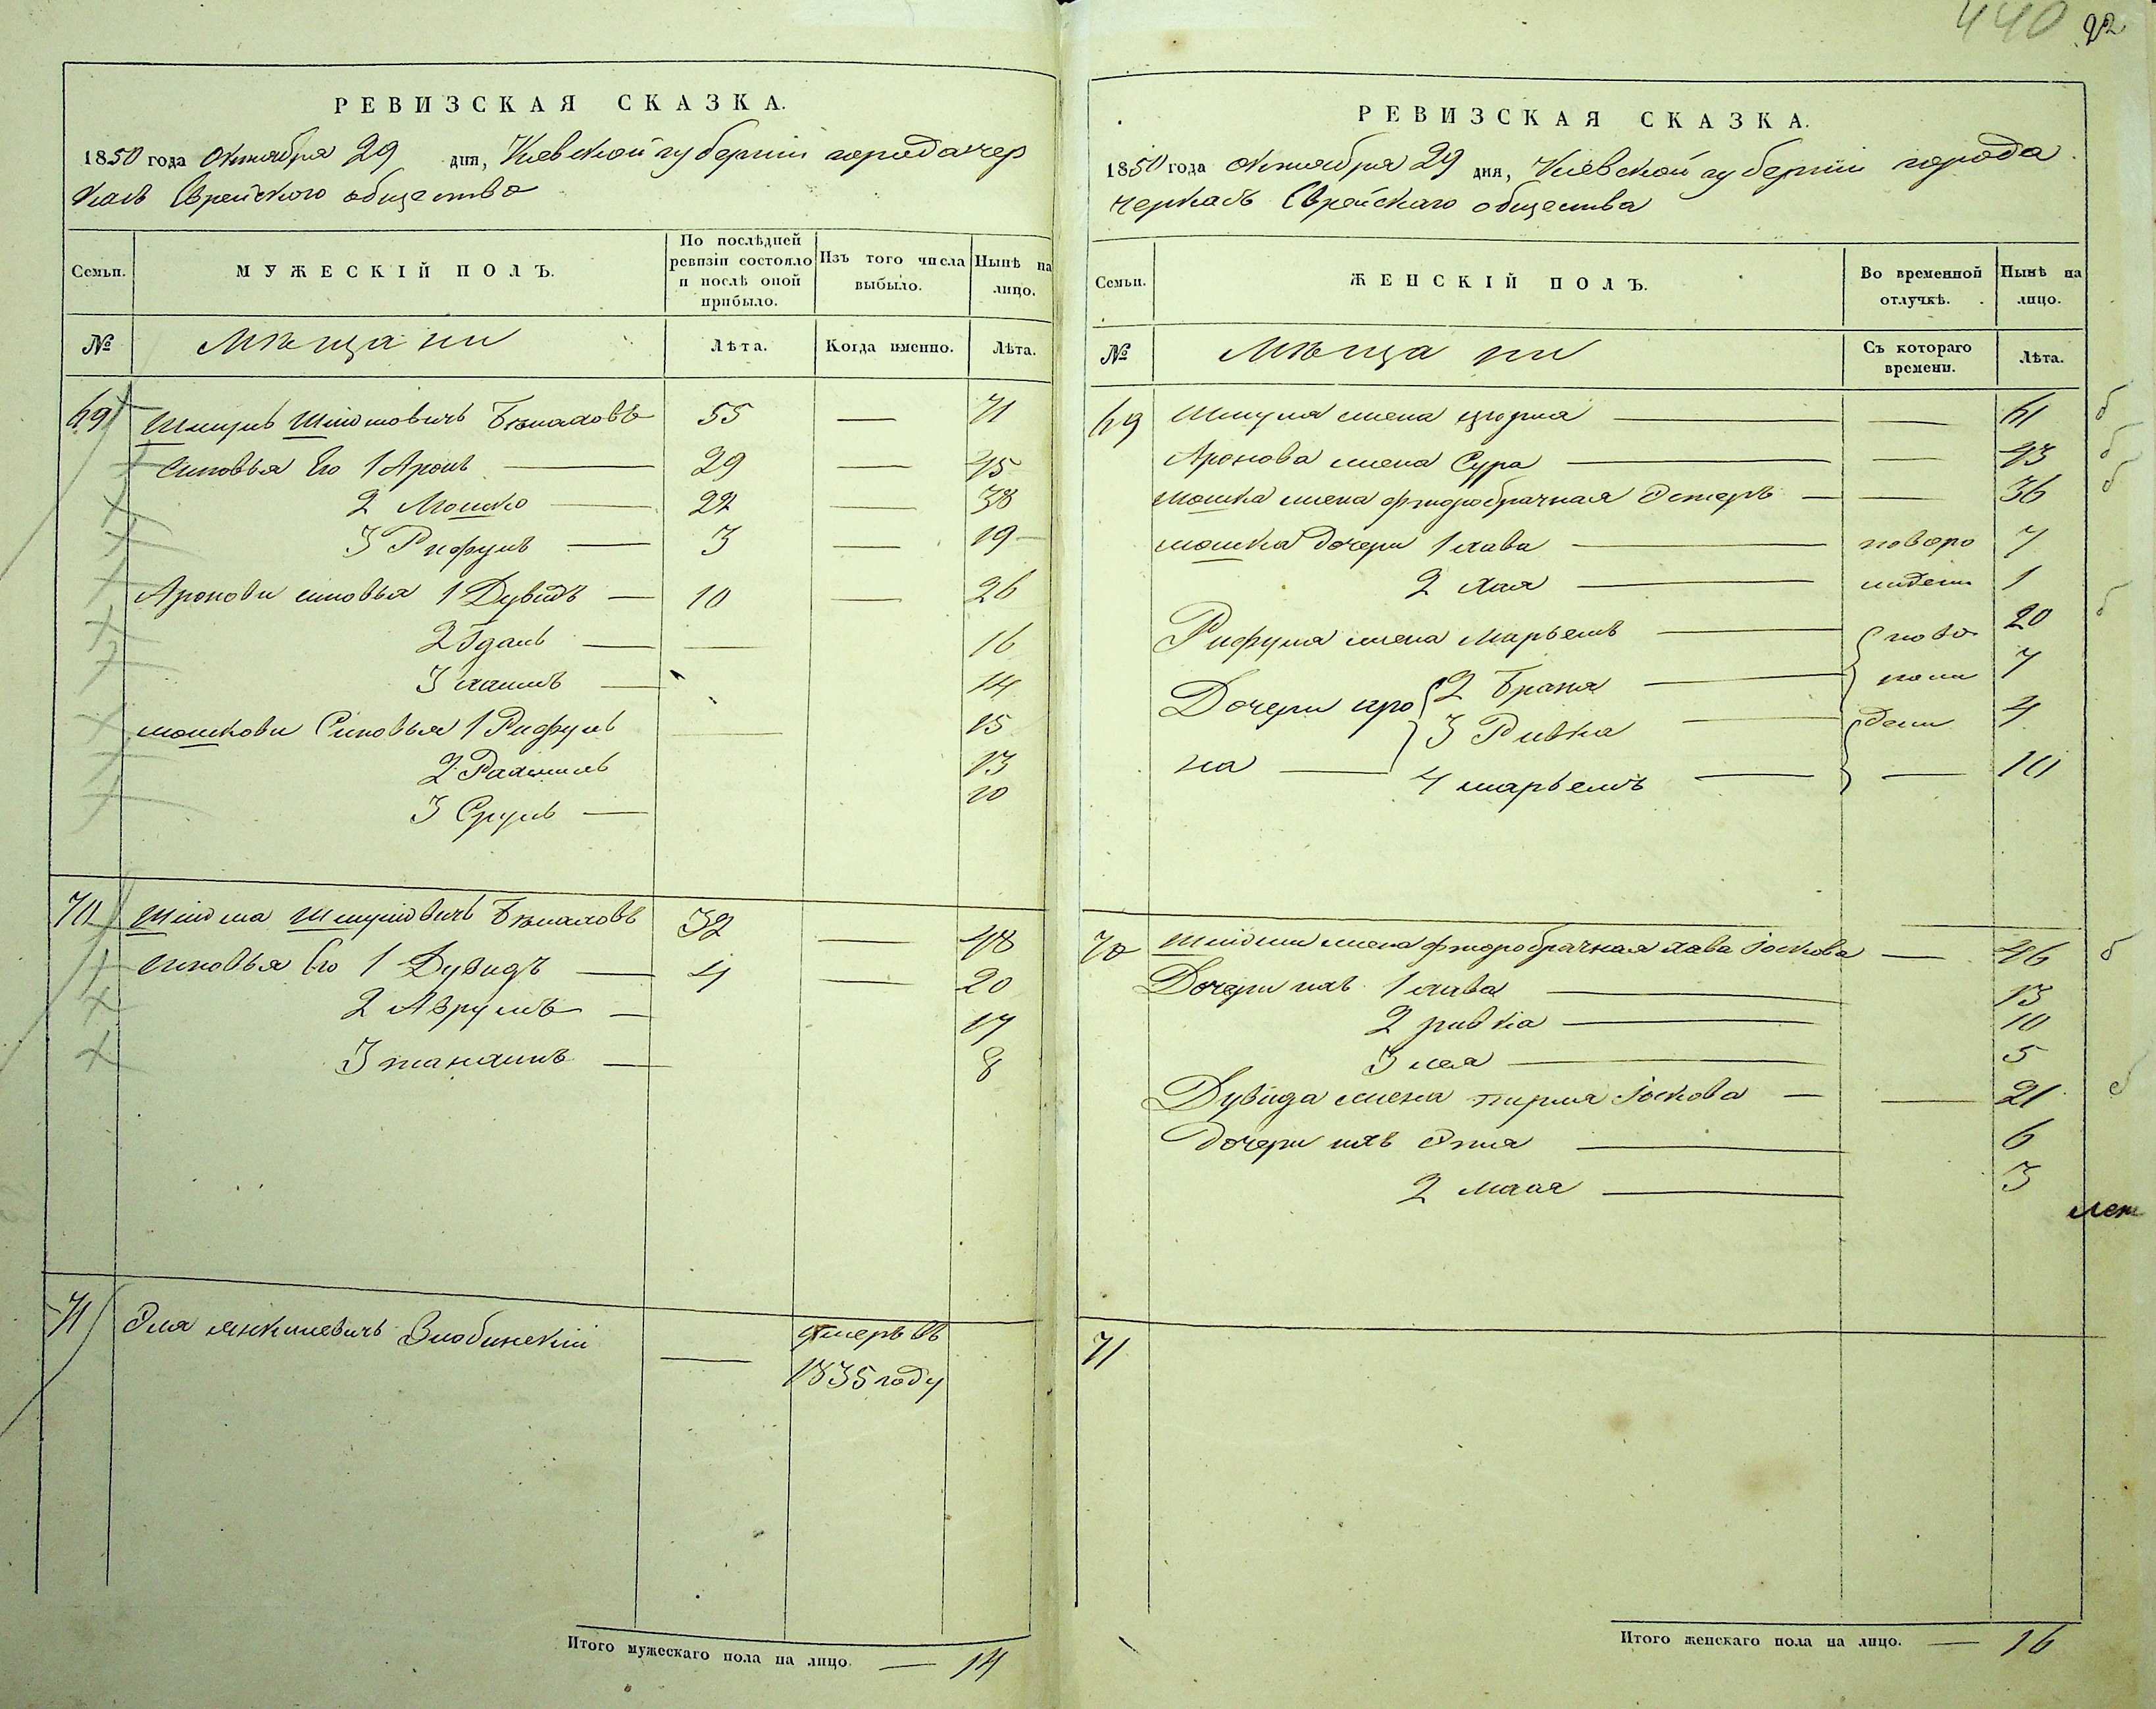 440 92
РЕВИЗСКАЯ СКАЗКА.
1850 года Октября 29 дня, Киевской губернiи города Чер
касъ Еврейского общества
Семьи. МУЖЕСКIЙ ПОЛЪ. По послѣдней ревизiи состояло и послѣ оной прибыло. Изъ того числа выбыло. Нынѣ на лицо.
№ Мѣщани Лѣта. Когда именно. Лѣта.
69 Шмуль Шлiомовичь 55 — 71
Синовья Его 1 Аронъ — 29 — 45
2 Мошко — 22 — 38
3 Рифулъ — 3 — 19
Аронови синовья 1 Дувидъ — 10 — 26
2 — — 16
3 хаимъ — 14
мошкови Синовья 1 Рифулъ — 15
2 Рахмиль 13
3 Сруль — 10
70 Шлiома Шмулiовичъ 32 — 48
синовья Его 1 Дувидъ — 4 — 20
2 Аврумъ — 17
3 танхимъ — 8
71 Эля Янкилевичь Злобинскiй — умеръ въ
1835 году
Итого мужескаго пола на лицо. — 14
РЕВИЗСКАЯ СКАЗКА.
1850 года октября 29 дня, Киевской губернiи города
Черкасъ Еврейскаго общества
Семьи. ЖЕНСКIЙ ПОЛЪ. Во временной отлучкѣ. Нынѣ на лицо.
№ Мѣщани Съ котораго времени. Лѣта.
69 Шмуля жена — — 61
Аронова жена Сура — — 43
мошка жена фторобрачная Эстеръ — — 36
мошка дочери 1 хава — новоро 7
2 хая — 1
Рифуля жена марьемъ — ново 20
Дочери аро 2 Брана — 7
на — 3 Ривка — дени 4
4 марьемъ — — 10
70 Шлiоми жена фторобрачная хава Iоскова — 46
Дочери ихъ 1 хава — 13
2 ривка — 10
3 лея — 5
Дувида жена пирля Iоскова — — 21
дочери ихъ Этля — 6
2 — 3
71
Итого женскаго пола на лицо. — 16